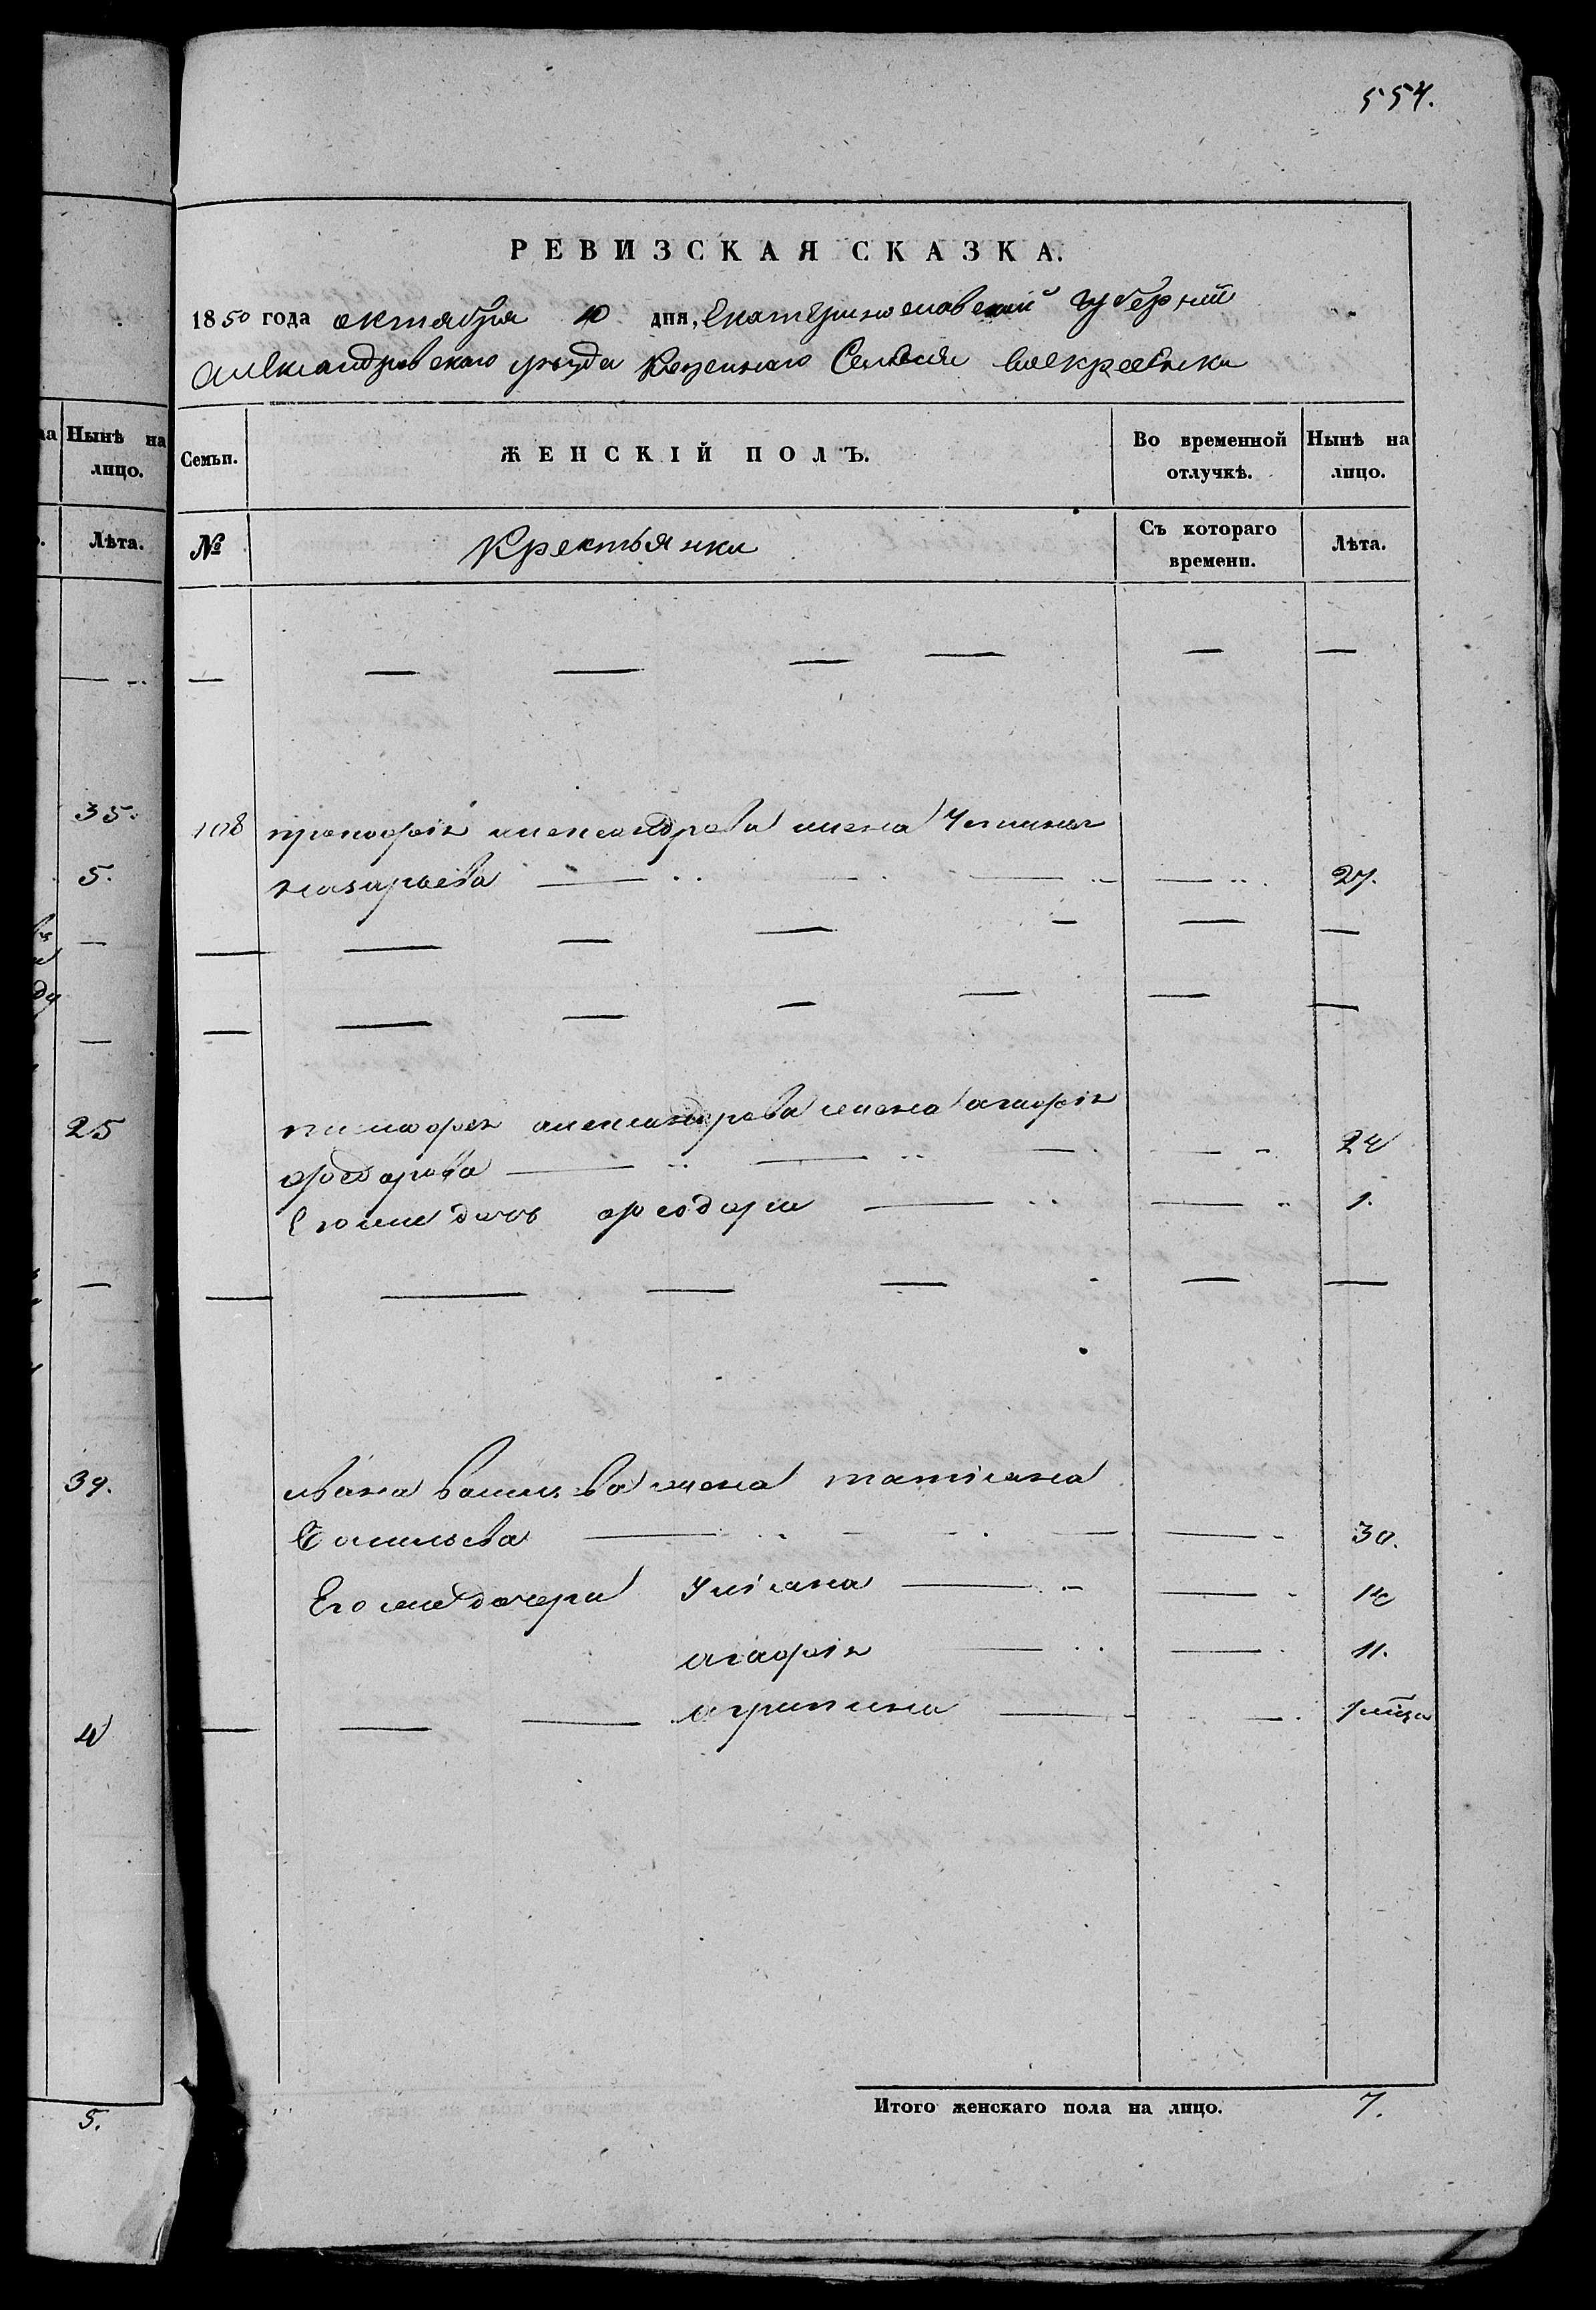 554.
РЕВИЗСКАЯ СКАЗКА.
1850 года октября 10 дня, Екатеринославской губернии
Александровского уезда Казенного Селения
на
Нынѣ на лицо.
Лѣта.
Семьи.
ЖЕНСКІЙ ПОЛЪ.
Во временной отлучкѣ.
Нынѣ на лицо.
№
Крестьянки
Съ котораго времени.
Лѣта.
35.
108 прокофія александрова жена
5.
назарьева 27.
25
тимофея александрова жена агафія
федорова 24
Его же дочь феодора 1.
39.
ивана васильева жена татіана
Васильева 30.
Его же дочери Уліана 14
агафія 11.
агрипина 1 мѣся
4
5.
Итого женскаго пола на лицо. 7.